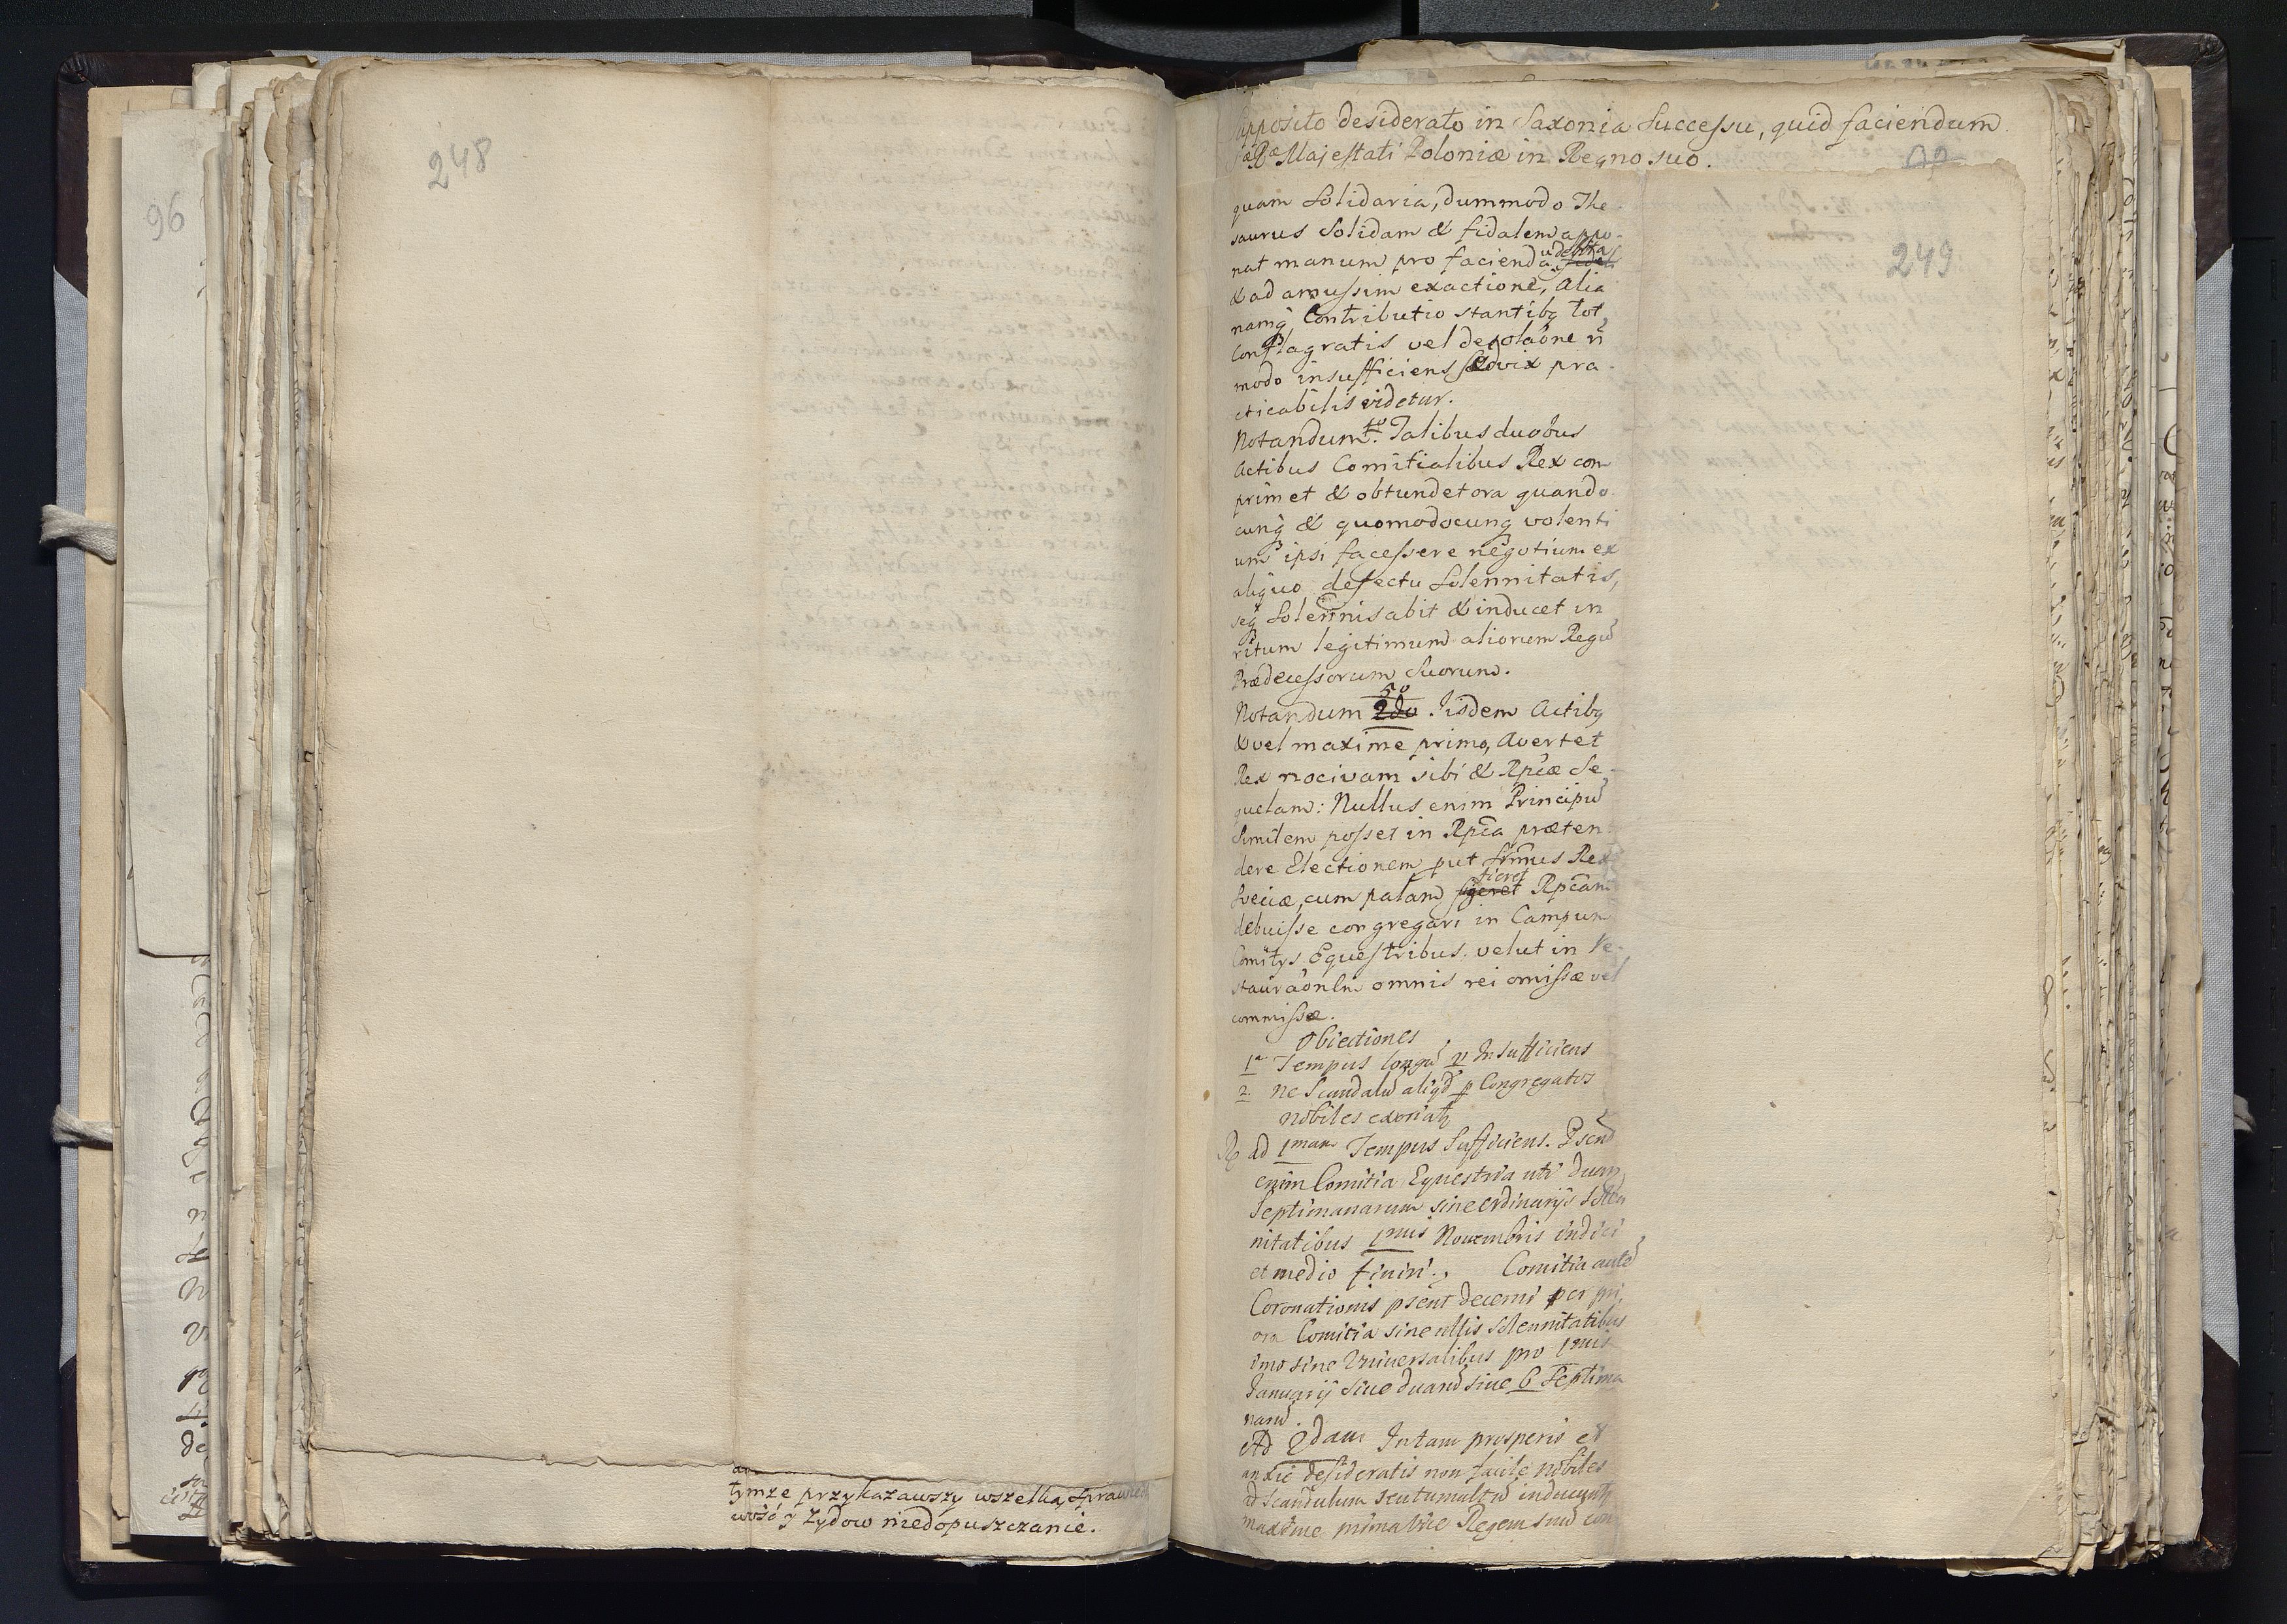 248
96
tymze przykazawszy wszelką sprawied
wość z Zydow niedopuszczanie.
Supposito desiderato in Saxonia Successu, quid faciendum
Majestati Poloniæ in Regno suo.
249
quam Solidaria, dummodo The-
saurus Solidam & fidalem appo-
nat manum pro facienda debita
& ad amussim exactione, Alia
namq Contributio stantibq tot
Conflagratis vel desolaône ñ
modo insufficiens sed vix pra-
cticabilis videtur.
Notandum 4to. Talibus duobus
Actibus Comitialibus Rex com
primet & obtundet ora quando-
cunq & quomodocunq volenti
um ipsi facessere negotium ex
aliquo defectu Solennitatis,
seq Solennisabit & inducet in
ritum legitimum aliorum Regū
Prædecessorum Suorum.
Notandum 2do 5to. Iisdem Actibq
& vel maxime primo, Avertet
Rex nocivam sibi & Rpĉæ Se-
quelam: Nullus enim Principū
Similem posset in Rpĉa præten
dere Electionem put Srmus Rex
Sveciæ, cum palam fieret Rpĉam
debuisse congregari in Campum
Comitÿs Equestribus, velut in Re-
stauraônem omnis rei omissæ vel
commissæ.
Obiectiones
1a Tempus longū ñ Insufficiens
2. ne Scandalū aliqd p Congregatos
nobiles exoriatq
Rp ad 1mam Tempus Sufficiens. Psent
enim Comitia Equestria uti duarum
Septimanarum sine ordinarijs Solen
nitatibus 1mis Nouembris indici
et medio finiri., Comitia autē
Coronationis psent decerni per pri
ora Comitia sine ullis Solennitatibus
imo sine Vniversalibus pro 1mis
Januarij siue duarū siue 6 Septima
narū.
Ad 2dam In tam prosperis et
anxie desideratis non facile nobiles
ad Scandulum seu tumultū inducuntq
maxime prima vice Regem suū con